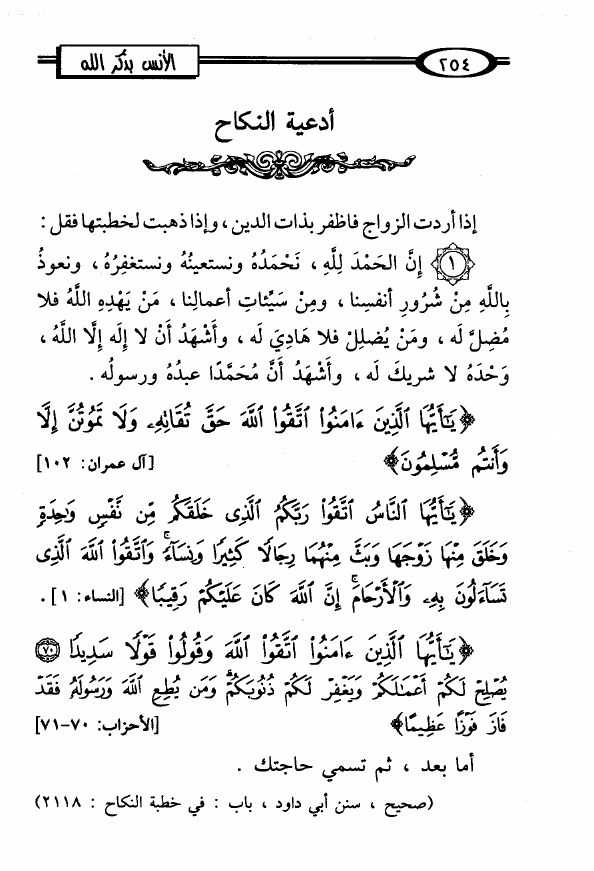 ٢٥٤ الأنس بذكر الله
أدعية النكاح
إذا أردت الزواج فاظفر بذات الدين ، وإذا ذهبت لخطبتها فقل :
١ إِنَّ الحَمْدَ لِلَّهِ ، نَحْمَدُهُ ونستعينُهُ ونستغفِرُهُ ، ونعوذُ
بِاللَّهِ مِنْ شُرُورِ أنفسِنا ، ومِنْ سَيِّئاتِ أعمالِنا ، مَنْ يَهْدِهِ اللَّهُ فلا
مُضِلَّ لَه ، ومَنْ يُضلِلْ فلا هادِيَ لَه ، وأَشْهَدُ أَنْ لا إِلَه إِلَّا اللَّهُ ،
وَحْدَهُ لا شريكَ لَه ، وأَشْهَدُ أَنَّ مُحَمَّدًا عبدُهُ ورسولُه .
﴿يَٰٓأَيُّهَا ٱلَّذِينَ ءَامَنُوا۟ ٱتَّقُوا۟ ٱللَّهَ حَقَّ تُقَاتِهِۦ وَلَا تَمُوتُنَّ إِلَّا
وَأَنتُم مُّسْلِمُونَ﴾ [آل عمران: ١٠٢]
﴿يَٰٓأَيُّهَا ٱلنَّاسُ ٱتَّقُوا۟ رَبَّكُمُ ٱلَّذِى خَلَقَكُم مِّن نَّفْسٍ وَٰحِدَةٍ
وَخَلَقَ مِنْهَا زَوْجَهَا وَبَثَّ مِنْهُمَا رِجَالًا كَثِيرًا وَنِسَآءً ۚ وَٱتَّقُوا۟ ٱللَّهَ ٱلَّذِى
تَسَآءَلُونَ بِهِۦ وَٱلْأَرْحَامَ ۚ إِنَّ ٱللَّهَ كَانَ عَلَيْكُمْ رَقِيبًا﴾ [النساء: ١] .
﴿يَٰٓأَيُّهَا ٱلَّذِينَ ءَامَنُوا۟ ٱتَّقُوا۟ ٱللَّهَ وَقُولُوا۟ قَوْلًا سَدِيدًا ٧٠
يُصْلِحْ لَكُمْ أَعْمَٰلَكُمْ وَيَغْفِرْ لَكُمْ ذُنُوبَكُمْ ۗ وَمَن يُطِعِ ٱللَّهَ وَرَسُولَهُۥ فَقَدْ
فَازَ فَوْزًا عَظِيمًا﴾ [الأحزاب: ٧٠-٧١]
أما بعد ، ثم تسمي حاجتك .
(صحيح ، سنن أبي داود ، باب : في خطبة النكاح : ٢١١٨)